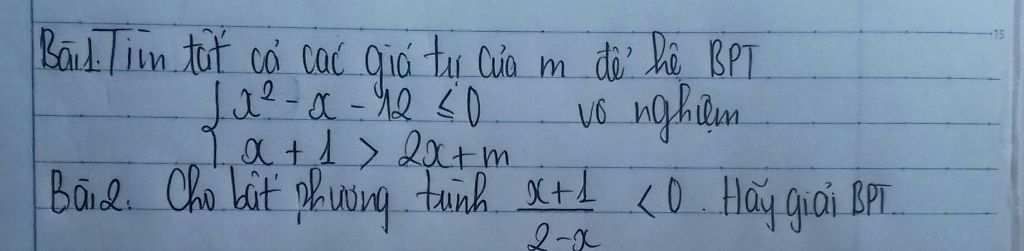 Bài 1. Tìm tất cả các giá trị của m để hệ BPT
{ x² - x - 12 ≤ 0 vô nghiệm
x + 1 > 2x + m
Bài 2. Cho bất phương trình (x+1)/(2-x) < 0. Hãy giải BPT.
15